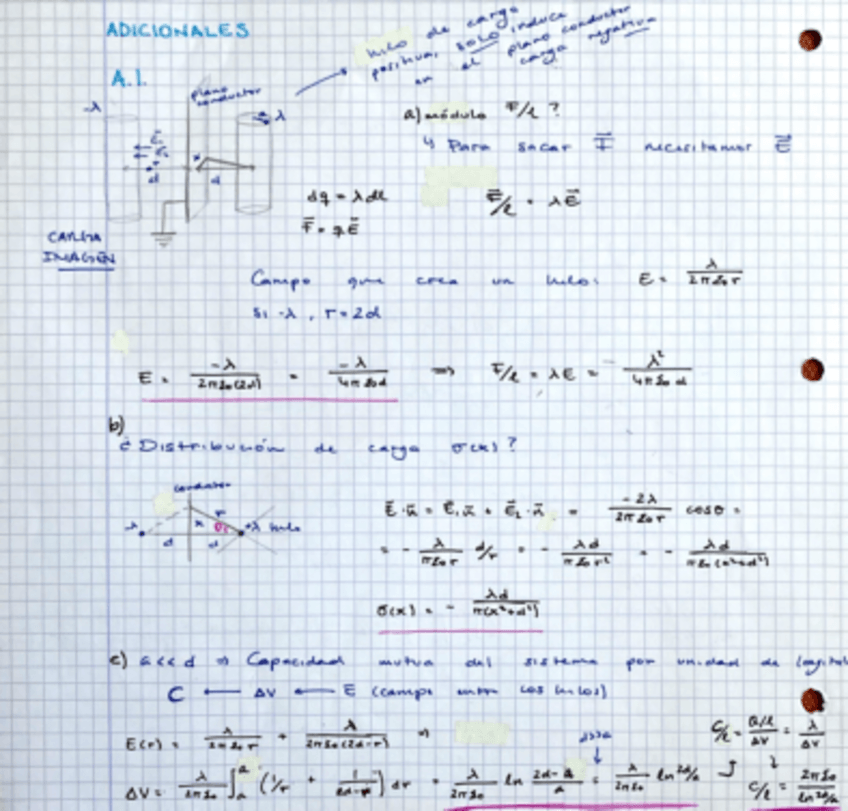 ADICIONALES
hilo de carga
positiva, solo induce
en el plano conductor
carga negativa
A.1.
plano
conductor
-λ
λ
E₁
E₂
d
x
d
CARGA
IMAGEN
a) módulo F/l ?
↳ Para sacar F necesitamos E
dq = λ dl
F = qE
F/l = λE
Campo que crea un hilo: E = λ/(2πε₀r)
si -λ, r = 2d
E = -λ/(2πε₀(2d)) = -λ/(4πε₀d) ⇒ F/l = λE = - λ²/(4πε₀d)
b)
¿Distribución de carga σ(x)?
conductor
-λ
r
x
d
d
+λ hilo
E·n = E₁·n + E₂·n = -2λ/(2πε₀r) cosθ =
= - λ/(πε₀r) d/r = - λd/(πε₀r²) = - λd/(πε₀(x²+d²))
σ(x) = - λd/(π(x²+d²))
c) a<<d ⇒ Capacidad mutua del sistema por unidad de longitud
C ← ΔV ← E (campo entre los hilos)
E(r) = λ/(2πε₀r) + λ/(2πε₀(2d-r)) ⇒
d>>a
C/l = (Q/l)/ΔV = λ/ΔV
ΔV = λ/(2πε₀) ∫ (1/r + 1/(2d-r)) dr = λ/(2πε₀) ln (2d-a)/a = λ/(2πε₀) ln 2d/a
C/l = 2πε₀/(ln 2d/a)